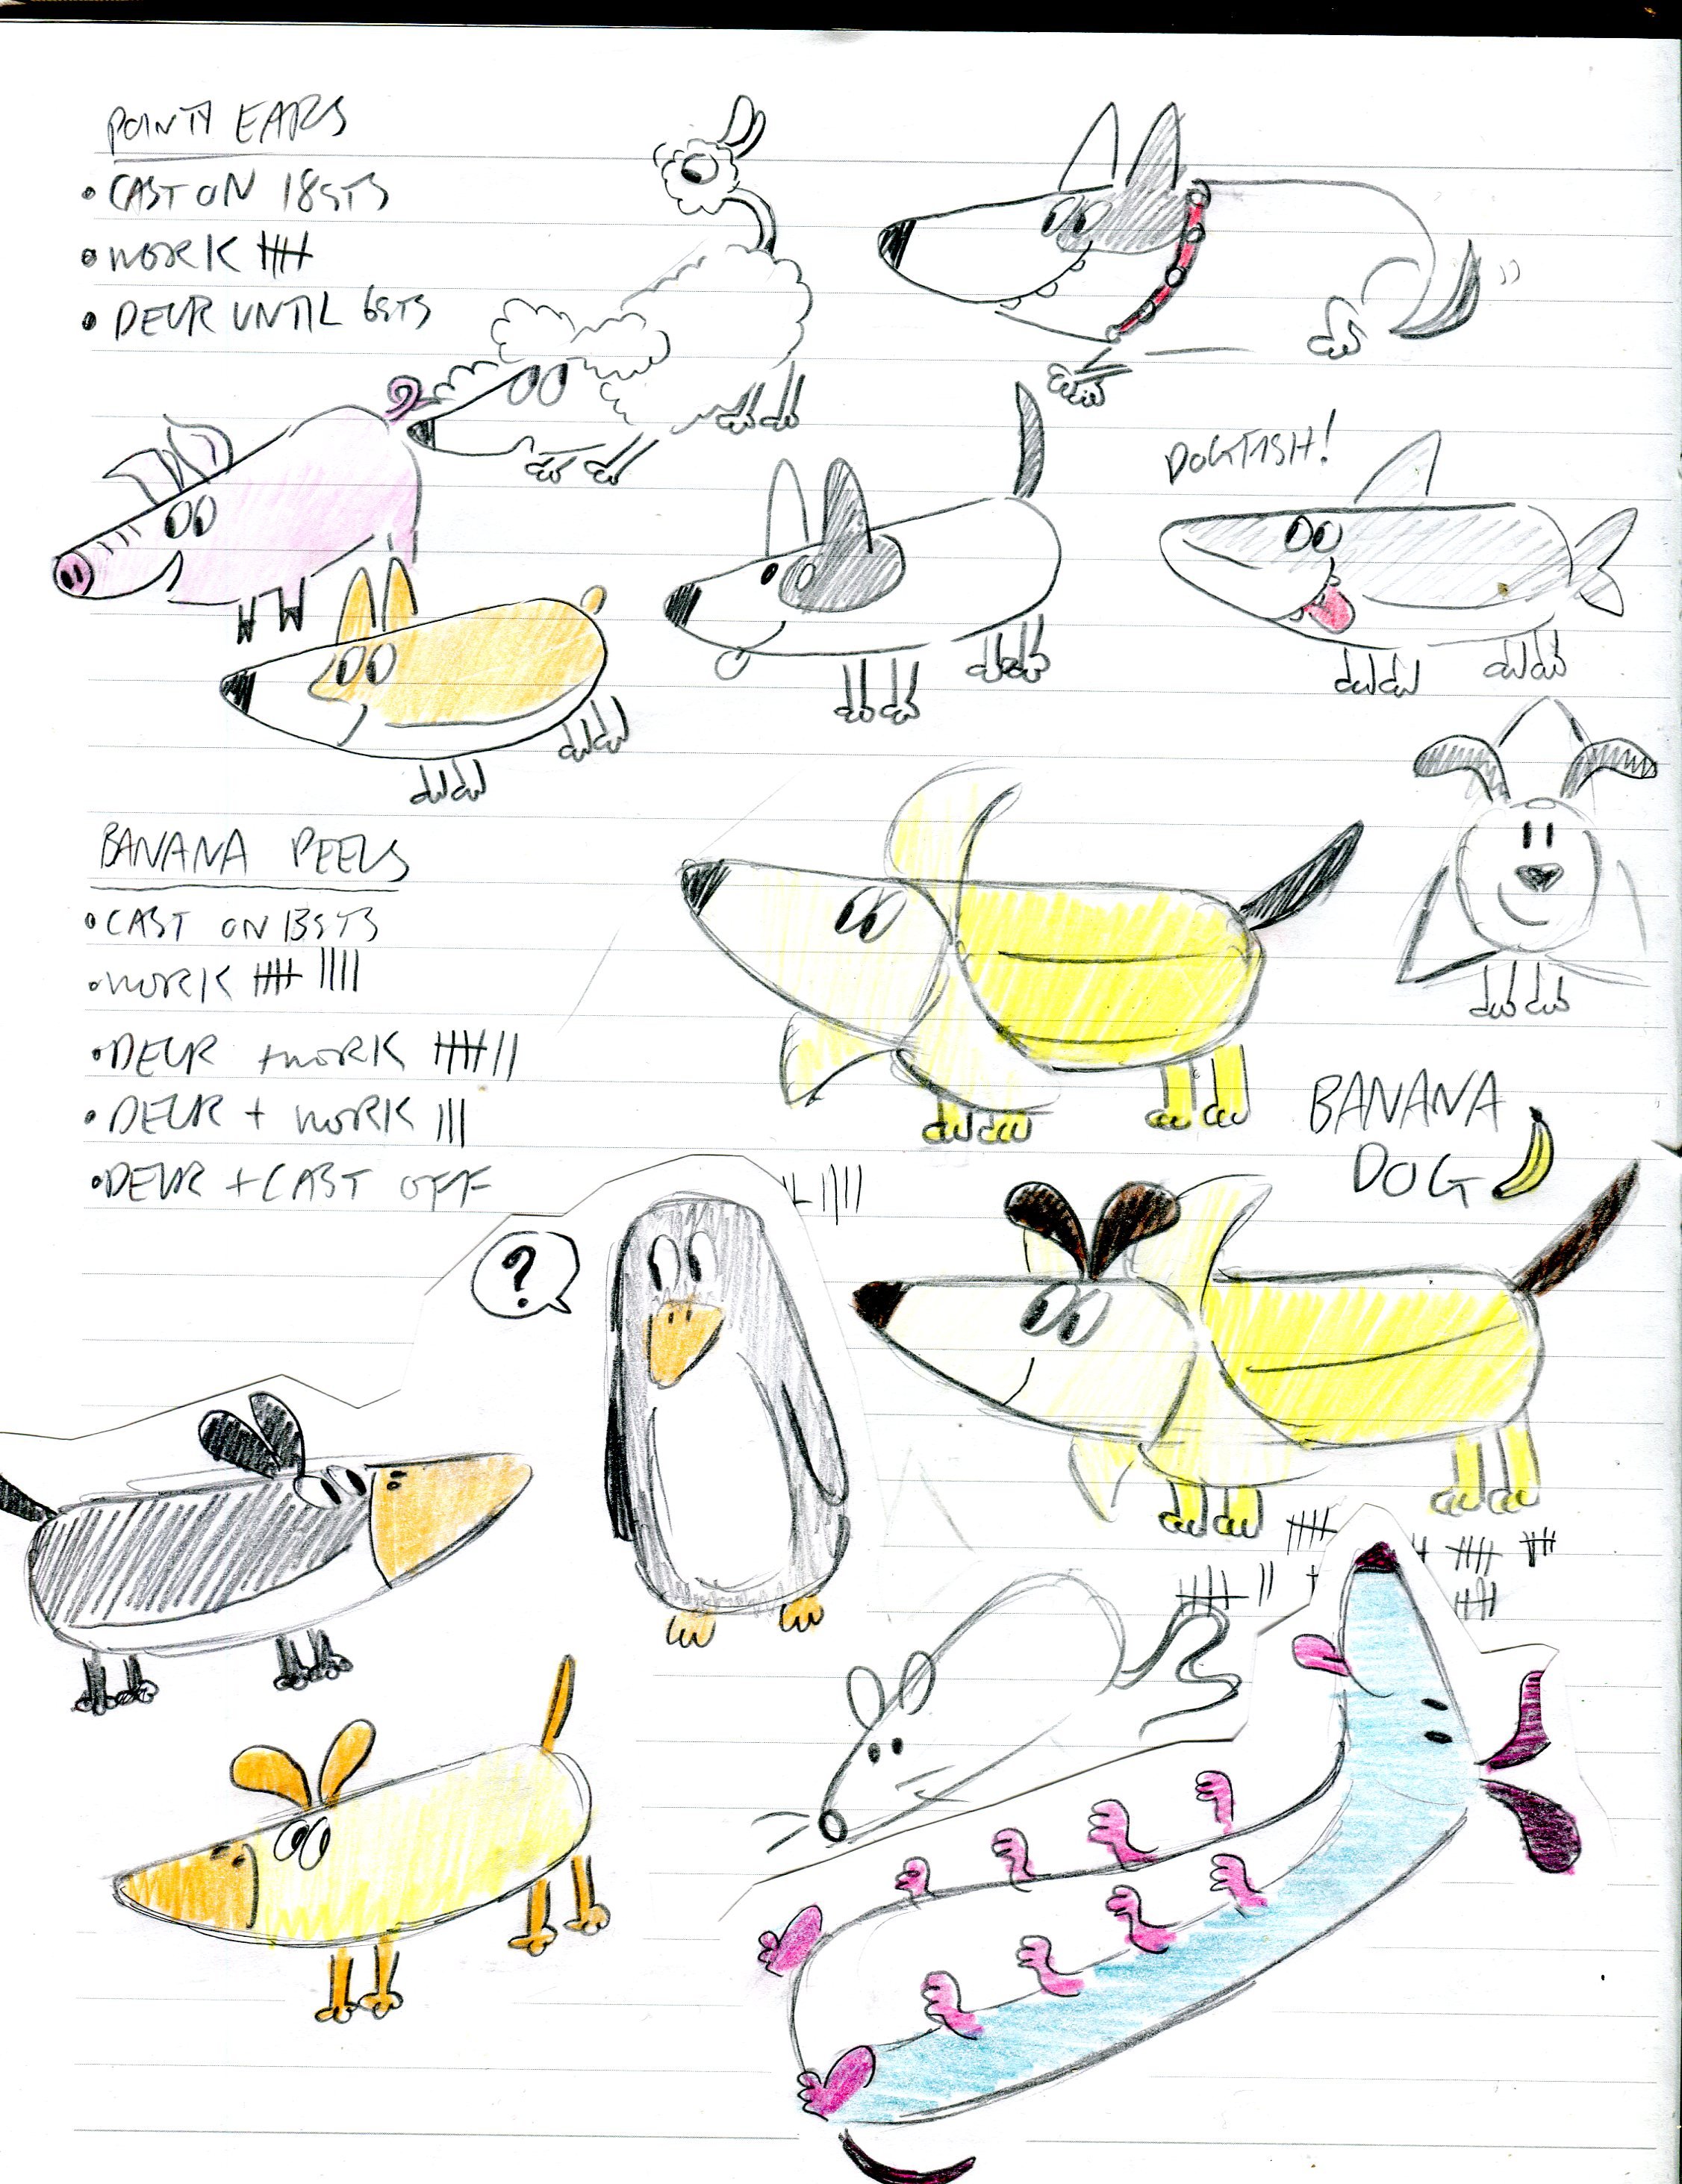 POINTY EARS
• CAST ON 18STS
• WORK 卌
• DECR UNTIL 6STS
DOGFISH!
BANANA PEELS
• CAST ON 13STS
• WORK 卌 ||||
• DECR + WORK 卌 ||
• DECR + WORK |||
• DECR + CAST OFF
BANANA
DOG
?